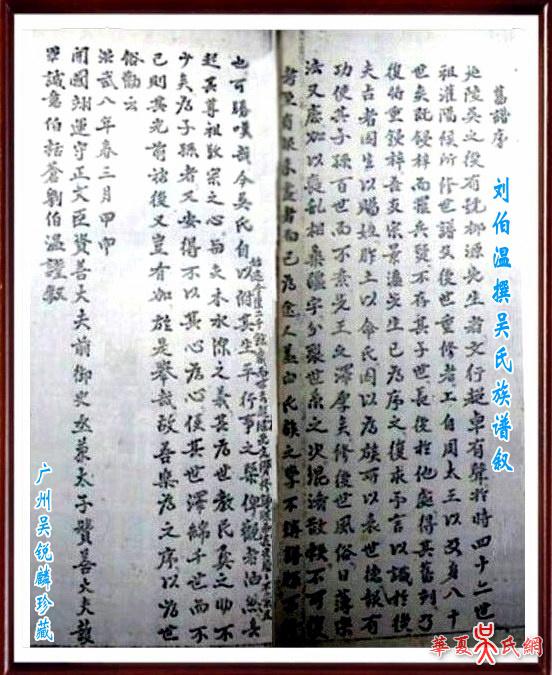 刘伯温撰吴氏族谱叙
舊譜序
延陵吳之後有號柳源先生者文行超卓有聲於時四十二世
祖灌陽侯所修世譜及後世重修者工自周太王以及身八十
世矣既鋟梓而罹兵燹不存其子世長後於他處得其舊刻乃
復的重鋟梓吾友宗景濂先生已為序之復求予言以識於後
夫古者因生以賜姓胙土以命氏因以為族可以表世德報有
功使其子孫百世而不紊先王之澤厚矣修後世風俗日薄宗
法又廢加以喪亂相乘疆宇分裂世系之次混淆散軼不可
者而已為愈人蓋由氏族之學不講
也可勝嘆哉今吳氏自以附其生平行事之槩俾觀者油然興
起其尊祖敬宗之心而知木本水源之義其為世教民彝之助不
少矣為子孫者又安得不以其心為心使其世澤綿千世而不
已則其光前詒後又豈有加於是舉哉故吾樂為之序以為世
俗勸云
洪武八年春三月甲申
開國翊運守正文臣資善大夫前御史丞兼太子贊善大夫護
軍誠意伯栝蒼劉伯溫謹叙
广州吴锐麟珍藏
華夏吴氏網